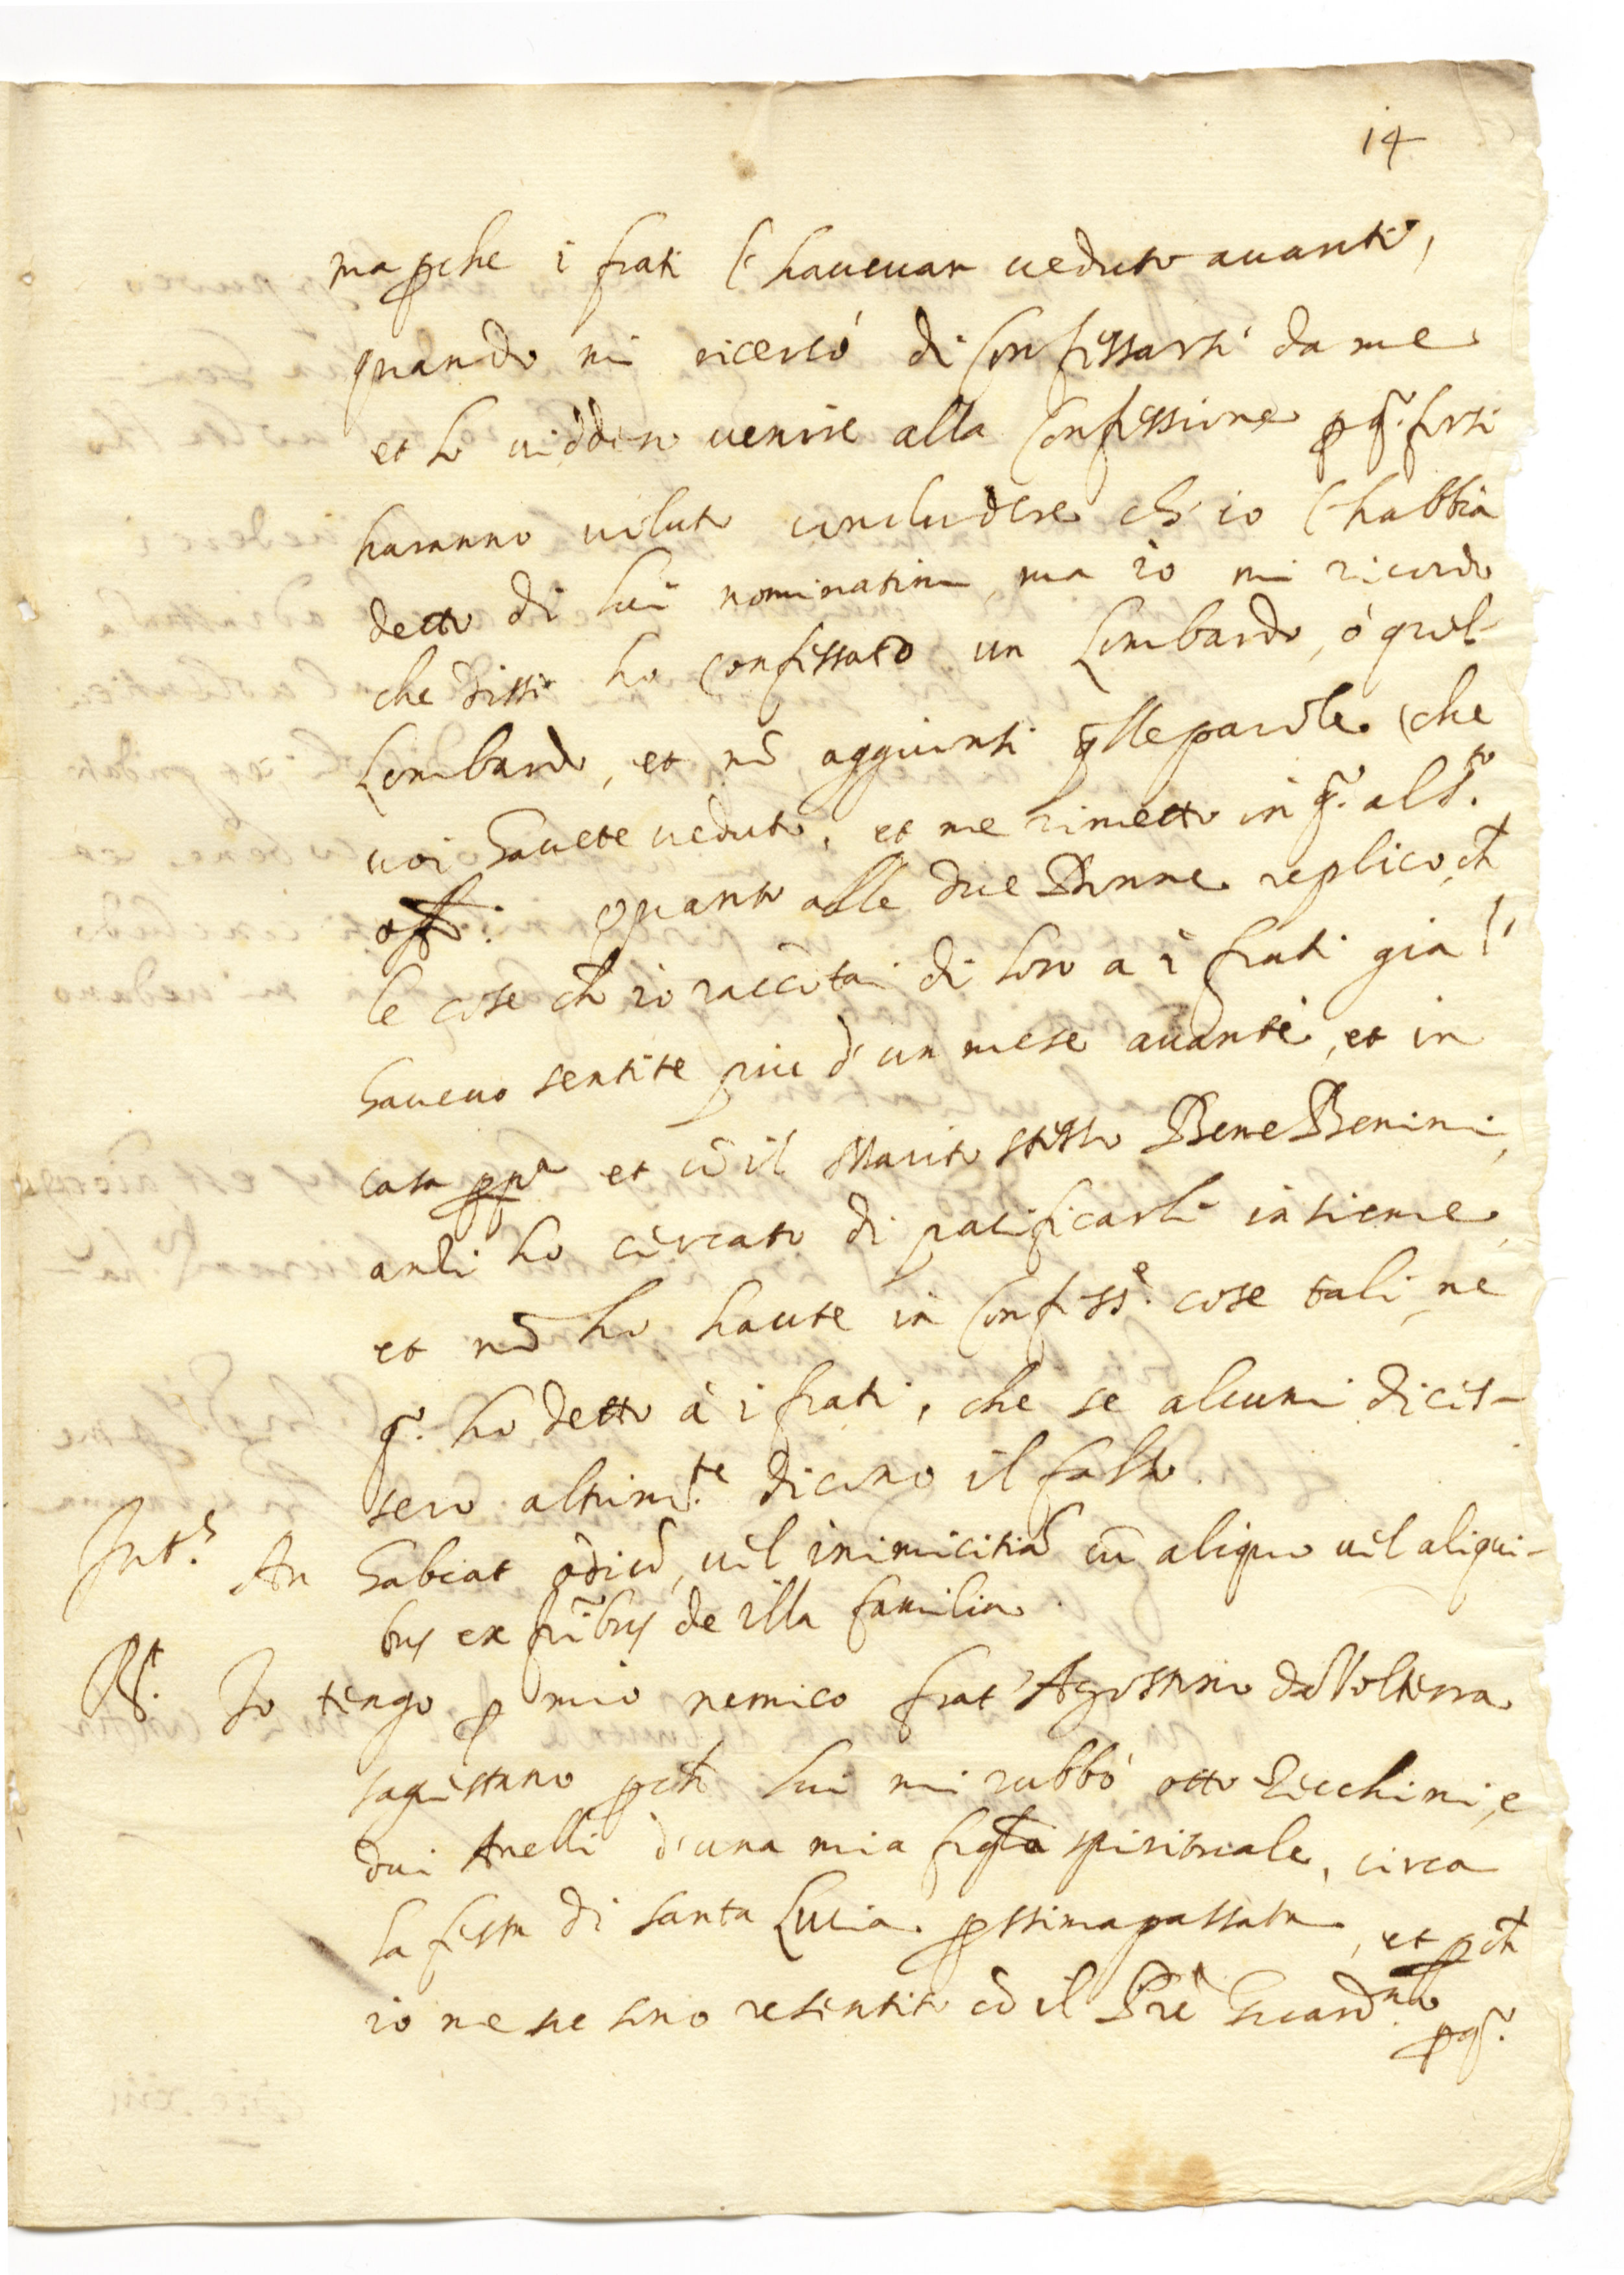 14
ma p̱che i frati l'haueuan ueduto auanti,
quando mi ricercò di Confessarsi da me
et lo uiddero uenire alla Confessione p̱ q.º forsi
haranno uoluto concludere ch'io l'habbia
detto di lui nominatim, ma io mi ricordo
che dissi ho Confessato un Lombardo, ò quel
Lombardo, et nō aggiunsi q̄lle parole che
uoi hauete ueduto, et me rimetto in q.º al d.to
quanto alle due Donne replico, ch̄
le cose ch̄ io raccōtai di loro a i frati gia l'
haueuo sentite piu d'un mese auanti, et in
casa p̱p.a et cō il Marito stesso Bene Benini,
anzi ho cercato di pacificarli insieme,
et nō ho haute in Confess.e cose tali, ne
q.º ho detto à i frati, che se alcuni dices-
sero altrim.te dicono il falso.
Int.s An habeat odiū, uel inimicitiā cū aliquo uel aliqui-
bus ex frībus de illa familia.
R.t Io tengo p̱ mio nemico frat'Agostino da Volterra
sagrestano p̱ch̄ lui mi rubbò otto zecchini, e
dui Anelli d'una mia figl̄a spirituale, circa
la festa di santa Lucia p̱ssima passata, et p̱ch̄
io me ne sono resentito cō il Prē Guard.no
p̱ q.º